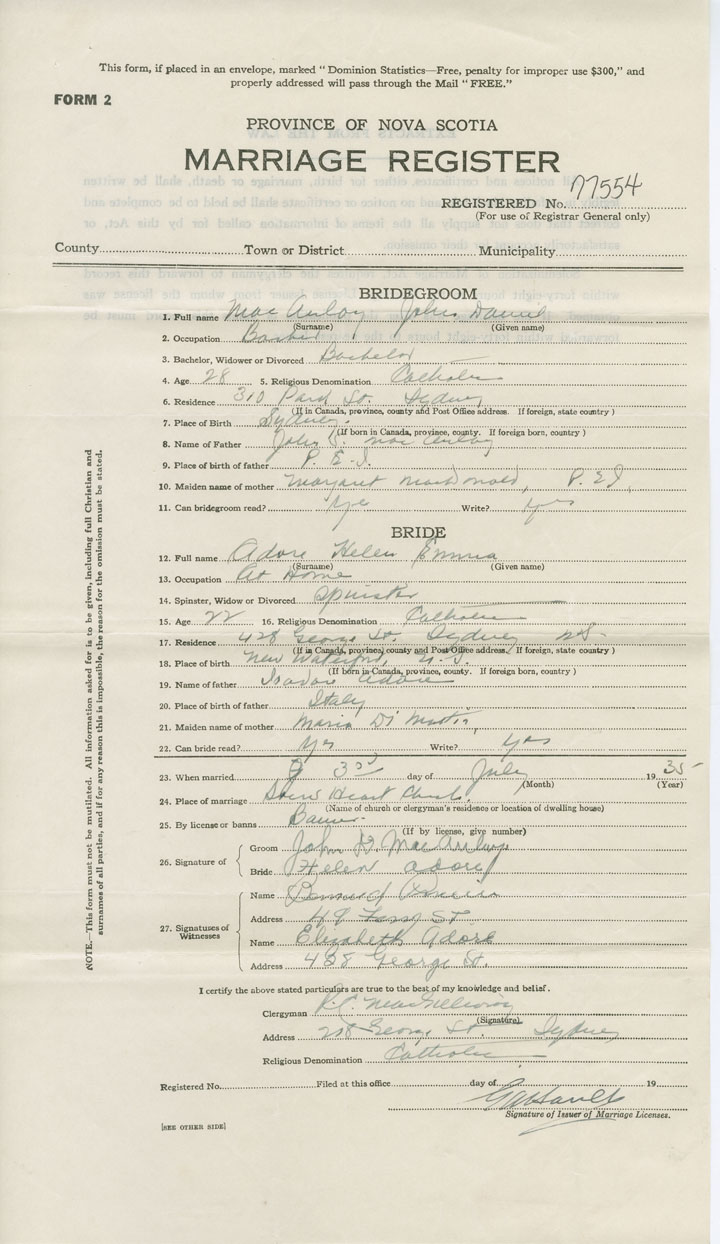 This form, if placed in an envelope, marked "Dominion Statistics—Free, penalty for improper use $300," and
properly addressed will pass through the Mail "FREE."
FORM 2
PROVINCE OF NOVA SCOTIA
MARRIAGE REGISTER
REGISTERED No. 77554
(For use of Registrar General only)
County Town or District Municipality
BRIDEGROOM
1. Full name John Daniel
(Surname) (Given name)
2. Occupation
3. Bachelor, Widower or Divorced Bachelor
4. Age 28 5. Religious Denomination Catholic
6. Residence 310 Park St. Sydney
(If in Canada, province, county and Post Office address. If foreign, state country)
7. Place of Birth Sydney.
(If born in Canada, province, county. If foreign born, country)
8. Name of Father John
9. Place of birth of father P. E. I.
10. Maiden name of mother Margaret MacDonald, P. E I,
11. Can bridegroom read? Yes Write? Yes
BRIDE
12. Full name Adore Helen Emma
(Surname) (Given name)
13. Occupation At Home
14. Spinster, Widow or Divorced Spinster
15. Age 22 16. Religious Denomination Catholic
17. Residence 428 George St. Sydney NS
(If in Canada, province, county and Post Office address. If foreign, state country)
18. Place of birth New Waterford, N. S.
(If born in Canada, province, county. If foreign born, country)
19. Name of father Isadore Adore
20. Place of birth of father Italy
21. Maiden name of mother Maria Di
22. Can bride read? Yes Write? Yes
23. When married 3rd day of July 1935
(Month) (Year)
24. Place of marriage Heart Church
(Name of church or clergyman's residence or location of dwelling house)
25. By license or banns Banns
(If by license, give number)
26. Signature of
Groom John D.
Bride Helen Adore
27. Signatures of Witnesses
Name Bernard
Address 49 Ferry St
Name Elizabeth Adore
Address 428 George St.
I certify the above stated particulars are true to the best of my knowledge and belief.
Clergyman R.C. MacGillivray
(Signature)
Address George St, Sydney
Religious Denomination Catholic
Registered No. Filed at this office day of 19
Signature of Issuer of Marriage Licenses.
[SEE OTHER SIDE]
NOTE.—This form must not be mutilated. All information asked for is to be given, including full Christian and
surnames of all parties, and if for any reason this is impossible, the reason for the omission must be stated.